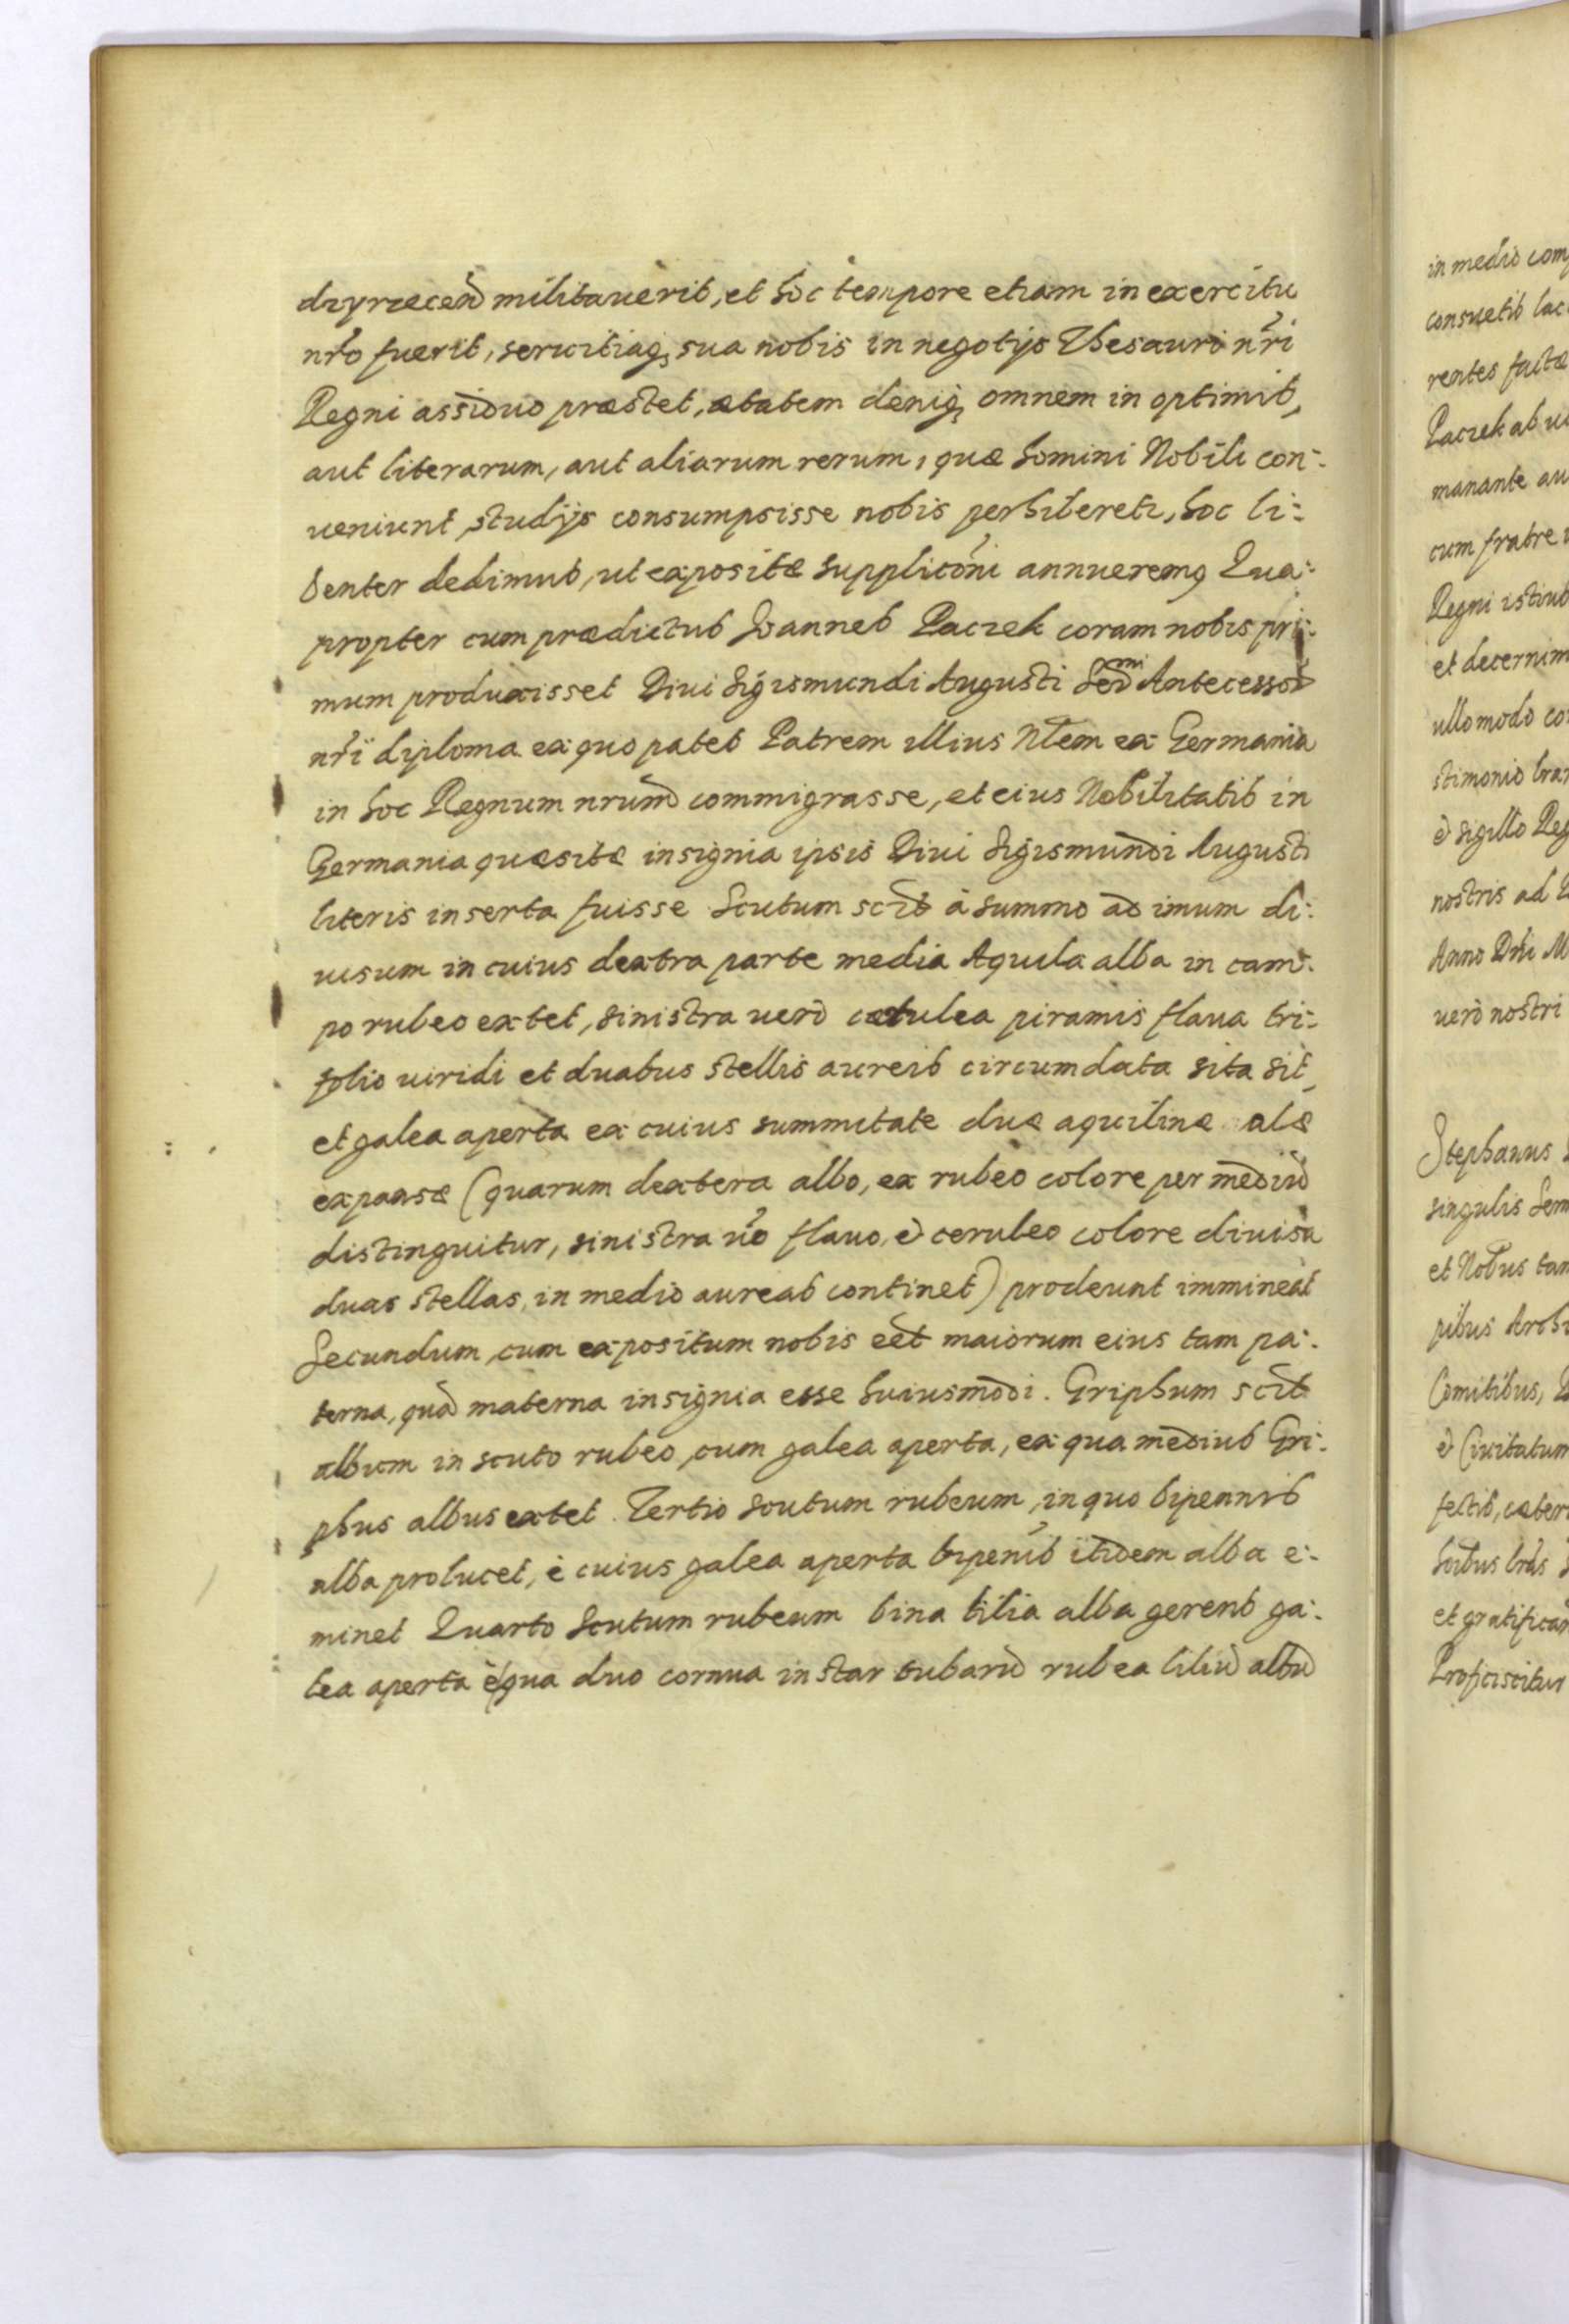 militauerit, et hoc tempore etiam in exercitu
nr̃o fuerit, seruitiaq̃ sua nobis in negotijs Thesauri nr̃i
Regni assiduo præstet, ætatem deniq̃ omnem in optimis,
aut literarum, aut aliarum rerum, quæ homini Nobili con:
ueniunt, studijs consumpsisse nobis perhiberet̃, hoc li:
benter dedimus, ut expositæ supplicõni annueremq̃ Qua:
propter cum prædictus Joannes Paczek coram nobis pri:
mum produxisset Diui Sigismundi Augusti Antecessor̃
nr̃i diploma ex quo patet Patrem illius Nłem ex Germania
in hoc Regnum nrũm commigrasse, et eius Nobilitatis in
Germania quæsitæ insignia ipsis Diui Sigismundi Augusti
literis inserta fuisse Scutum scił à summo ad imum di:
uisum in cuius dextra parte media Aquila alba in cam:
po rubeo extet, sinistra uerò cærulea piramis flaua tri:
folio uiridi et duabus stellis aureis circumdata sita sit,
et galea aperta ex cuius summitate duæ aquilinæ alæ
expansæ (quarum dextera albo, ex rubeo colore per mediũ
distinguitur, sinistra ũo flauo, & ceruleo colore diuisa
duas stellas, in medio aureas continet) prodeunt immineat
Secundum, cum expositum nobis eet maiorum eius tam pa:
terna, quã materna insignia esse huiusmodi. Griphum scił
album in scuto rubeo, cum galea aperta, ex qua medius Gri:
phus albus extet. Tertio scutum rubeum, in quo bipennis
alba prolucet, è cuius galea aperta bipenis itidem alba e:
minet Quarto Scutum rubeum bina lilia alba gerens ga:
lea aperta è qua duo cornua instar tubarũ rubea liliũ albũ
in medio com
consuetis lac
rentes factæ
Paczek ab
manante au
cum fratre
Regni istius
et decernim
ullo modo co
stimonio
& sigillo Reg
nostris ad
Anno Dñi M
uerò nostri
Stephanus
singulis Sem
et Nobus tam
pibus Archi
Comitibus,
& Ciuitatum
fectis, cæter

et gratificam
Proficiscitur